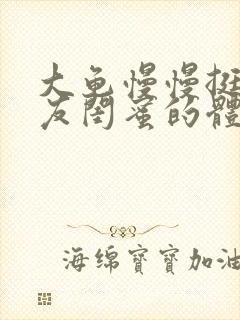 大龟慢慢挺
友闺蜜的體
海绵寶寶加油